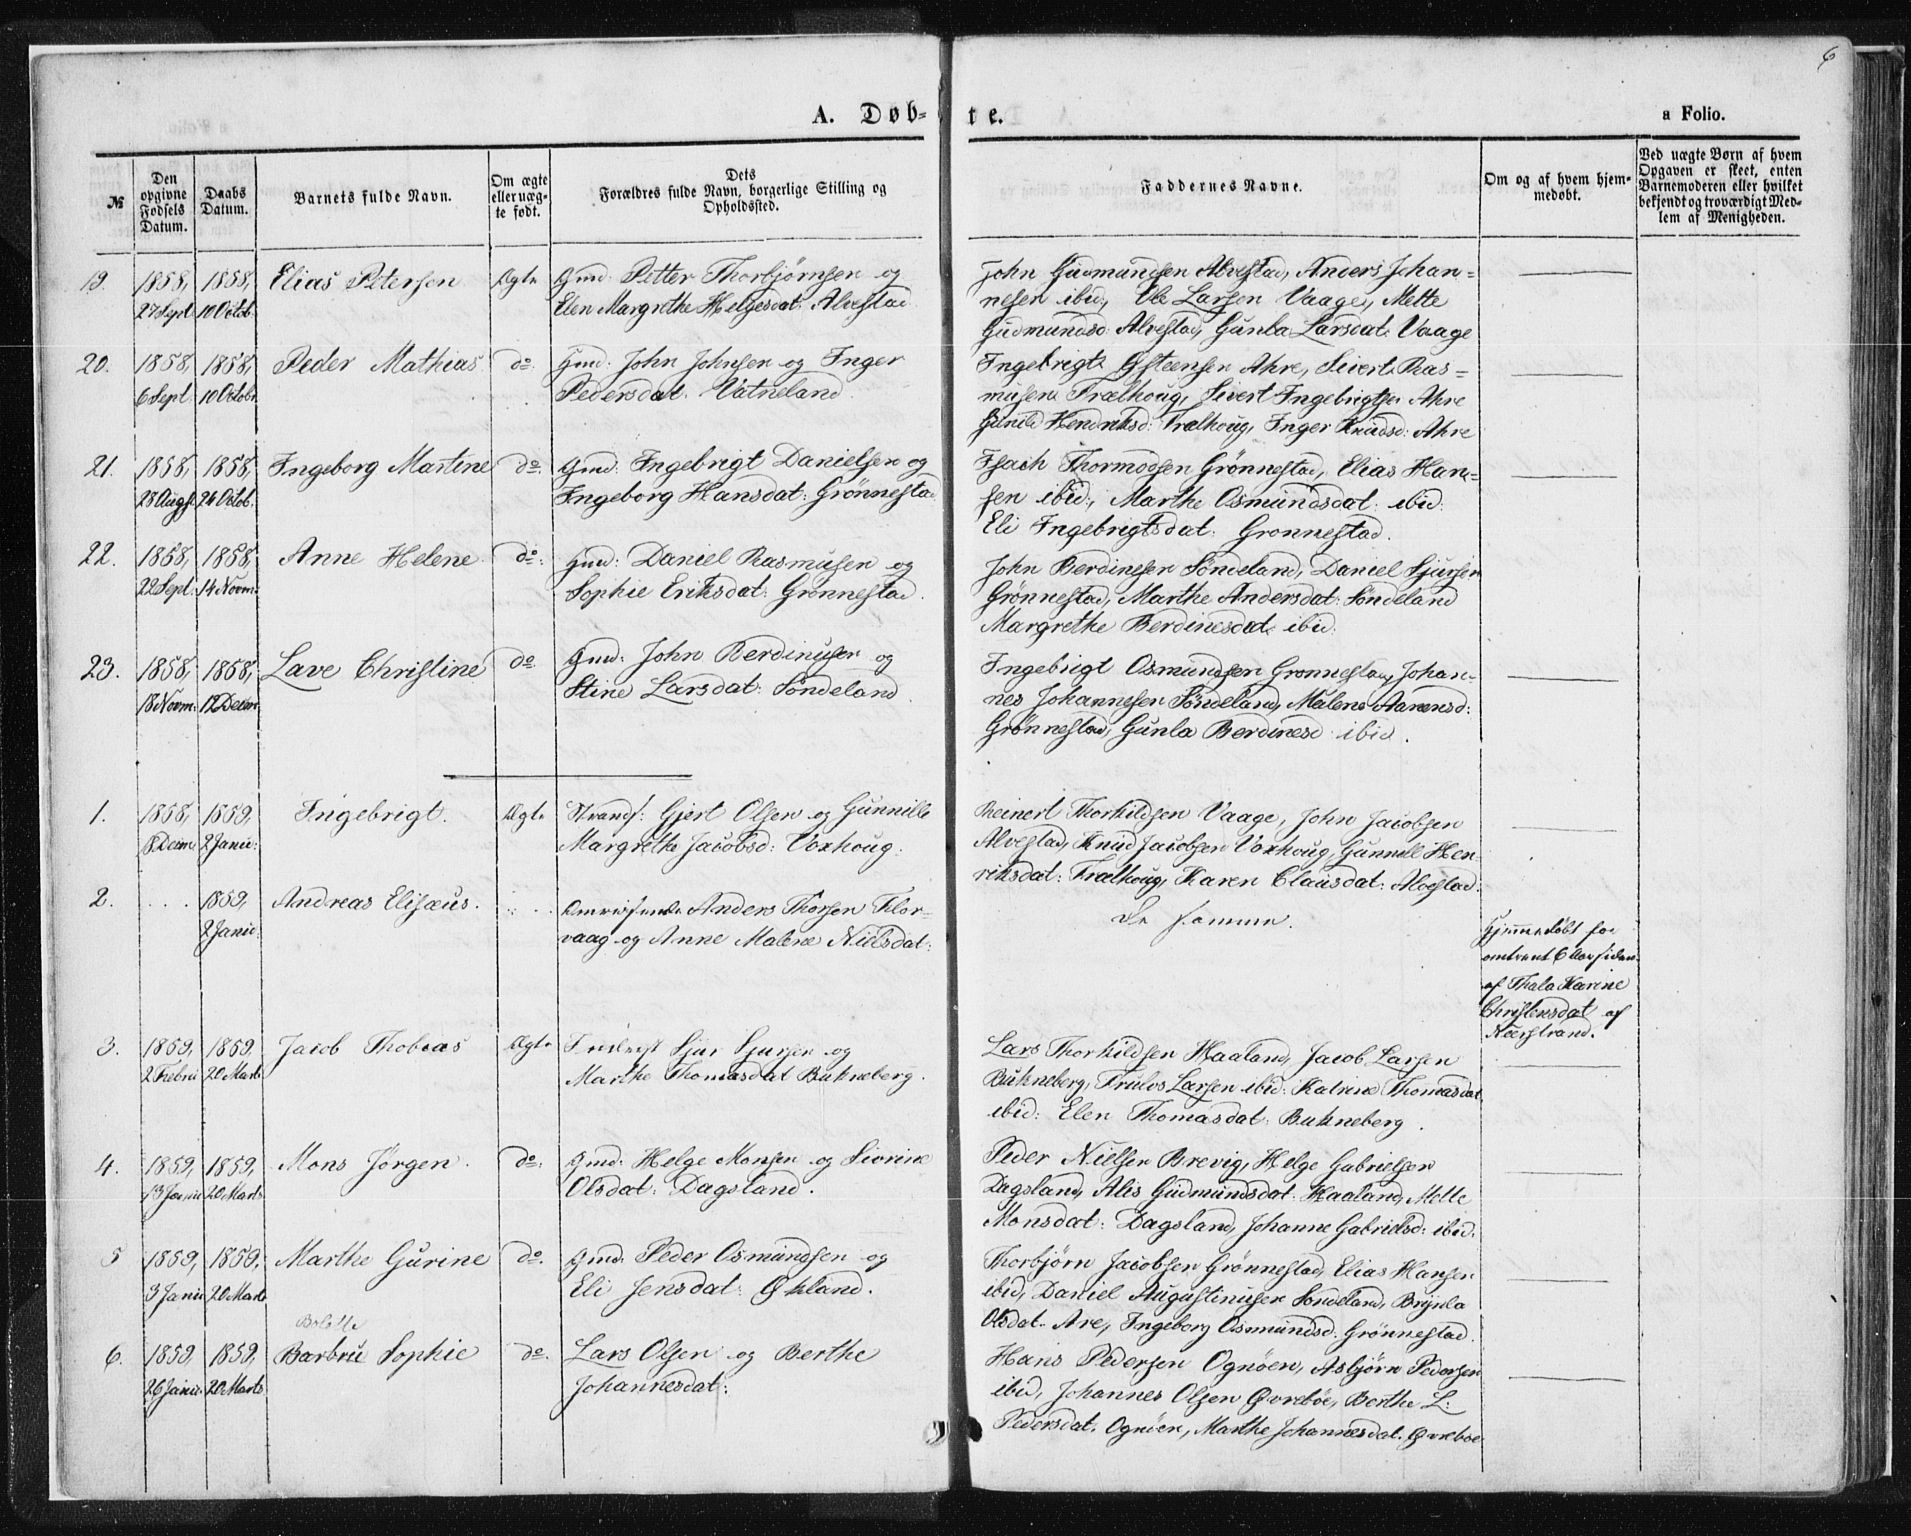 6
A. Døb-te.
a Folio.
№
Den opgivne Fødsels Datum.
Daabs Datum.
Barnets fulde Navn.
Om ægte eller uægte født.
Dets Forældres fulde Navn, borgerlige Stilling og Opholdssted.
Faddernes Navne.
Om og af hvem hjemmedøbt.
Ved uægte Børn af hvem Opgaven er skeet, enten Barnemoderen eller hvilket bekjendt og troværdigt Medlem af Menigheden.
19. 1858, 1858, Elias Petersen Ægte Gmd: Petter Thorbjørnsen og
27 Sept 10 Octob. Elen Margrethe Helgesdat: Alvestad
John Gudmundsen Alvestad, Anders Johan=
nesen ibid, Ole Larsen Vaage, Mette
Gudmundsd: Alvestad, Gunla Larsdat: Vaage
20. 1858, 1858, Peder Mathias do: Gmd: John Johnsen og Inger
6 Sept 10 Octobr Pedersdat. Vatneland
Ingebrigt Østeensen Ahre, Sivert Ras=
musen Trælhoug, Sivert Ingebrigtsen Ahre
Gunild Hendriksd: Trælhoug, Inger Knudsd: Ahre
21. 1858, 1858, Ingeborg Martine do: Gmd: Ingebrigt Danielsen og
23 Augst. 24 Octob. Ingeborg Hansdat: Grönnestad
Isach Thormodsen Grönnestad, Elias Han=
sen ibid:, Marthe Osmundsdat: ibid:
Eli Ingebrigtsdat: Gronnestad.
22. 1858, 1858, Anne Helene do: Gmd: Daniel Rasmusen og
22 Sept: 14 Novm: Sophie Eriksdat: Grönnestad.
John Berdinesen Söndeland, Daniel Sjursen
Grönnestad, Marthe Andersdat: Söndeland
Margrethe Berdinesdat. ibid:
23. 1858, 1858, Lave Christine do Gmd: John Berdinusen og
18 Novm: 12 Decm Stine Larsdat: Söndeland
Ingebrigt Osmundsen Gronnestad, Johan=
nes Johannesen Söndeland, Malene Aanensd:
Grönnestad, Gunla Berdinesd ibid.
1. 1858, 1859, Ingebrigt. Ægte Strands: Gjert Olsen og Gunnille
8 Decm 2 Janu: Margrethe Jacobsd: Voxhoug.
Reinert Thorkildsen Vaage, John Jacobsen
Alvestad, Knud Jacobsen Voxhoug, Gunnell Hen-
riksdat: Trælhoug, Karen Clausdat: Alvestad:
2. ... 1859, Andreas Elisæus. Anders Thorsen Flor=
2 Janu: vaag og Anne Malene Nielsdat:
De samme.
Hjemmedøbt for
omtrent 6 Aar siden
af Thala Karine
Christensdat af
Neerstrand.
3. 1859, 1859, Jacob Thobias Ægte Sjur Sjursen og
2 Febru 20 Marts Marthe Thomasdat Bukneberg.
Lars Thorkildsen Haaland, Jacob Larsen
Bukneberg, Truls Larsen ibid: Katrine Thomasdat
ibid: Elen Thomasdat: Bukneberg.
4. 1859, 1859, Mons Jørgen. do. Gmd: Helge Monsen og Sivrine
13 Janu 20 Marts Olsdat: Dagsland.
Peder Nielsen Brevig, Helge Gabrielsen
Dagsland, Alis Gudmundsdat: Haaland, Mette
Monsdat: Dagsland, Johanne Gabrielsd: ibid.
5 1859, 1859, Marthe Gurine do. Gmd: Peder Osmundsen og
3 Janu 20 Marts Eli Jensdat: Økland.
Thorbjørn Jacobsen Grönnestad, Elias Hansen
ibid, Daniel Augustinusen Söndeland, Brynla
Olsdat. Are, Ingeborg Osmundsd: Grönnestad.
Bolette
6. 1859, 1859, Barbru Sophie do. Lars Olsen og Berthe
26 Janu: 20 Marts Johannesdat:
Hans Pedersen Ognöen, Asbjørn Pedersen
ibid, Johannes Olsen Øvreböe, Berthe L:
Pedersdat. Ognöen, Marthe Johannesdat. Øvreboe